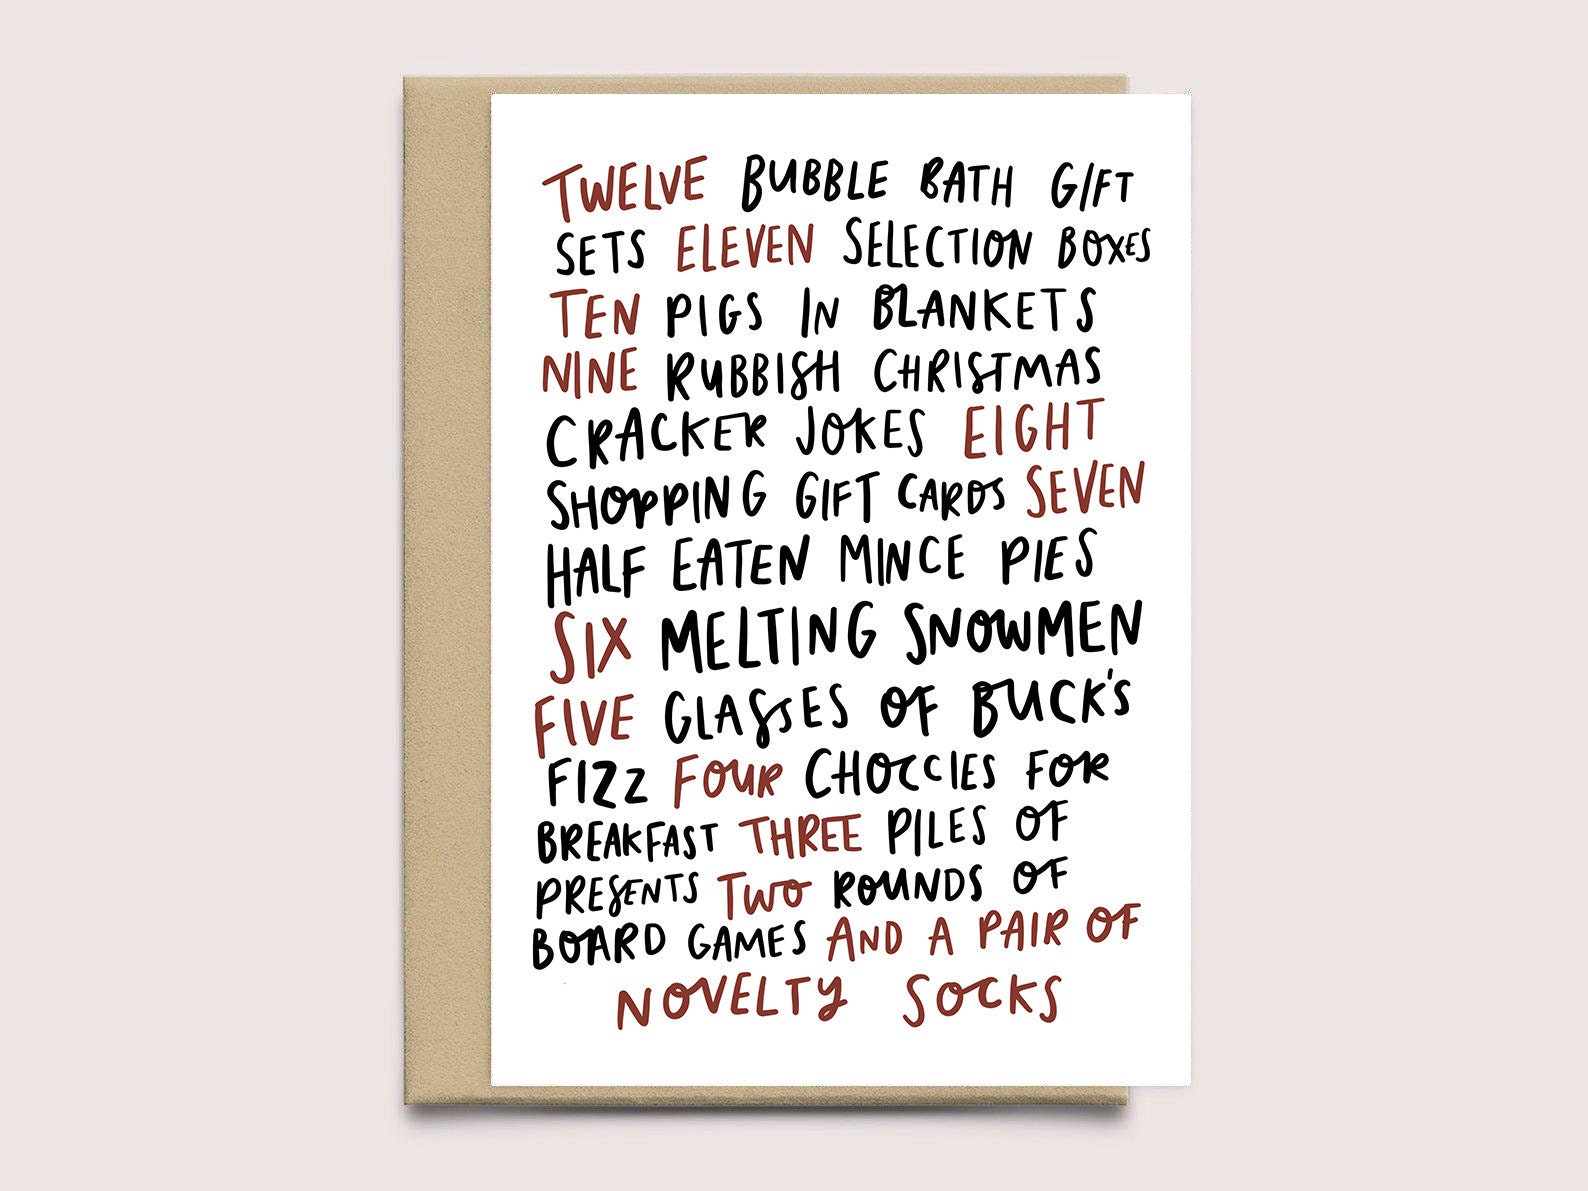 TWELVE BUBBLE BATH GIFT
SETS ELEVEN SELECTION BOXES
TEN PIGS IN BLANKETS
NINE RUBBISH CHRISTMAS
CRACKER JOKES EIGHT
SHOPPING GIFT CARDS SEVEN
HALF EATEN MINCE PIES
SIX MELTING SNOWMEN
FIVE GLASSES OF BUCK'S
FIZZ FOUR CHOCCIES FOR
BREAKFAST THREE PILES OF
PRESENTS TWO ROUNDS OF
BOARD GAMES AND A PAIR OF
NOVELTY SOCKS